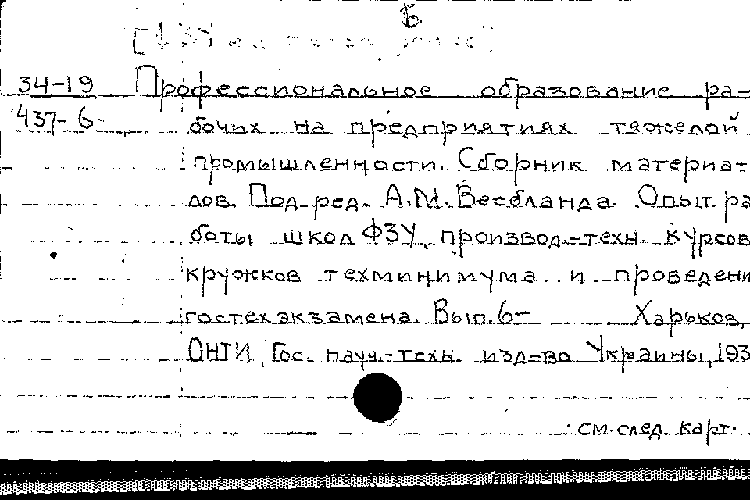 Б
34-19 Профессиональное образование ра-
437-6 бочих на предприятиях тяжелой
промышленности. Сборник материа-
лов. Под ред. А.М. Весбланда. Опыт ра
боты школ ФЗУ, производ.-техн. курсов
кружков техминимума и проведени
гостехэкзамена. Вып. 6- Харьков,
ОНТИ, Гос. науч.-техн. изд-во Украины, 193
см. след. карт.